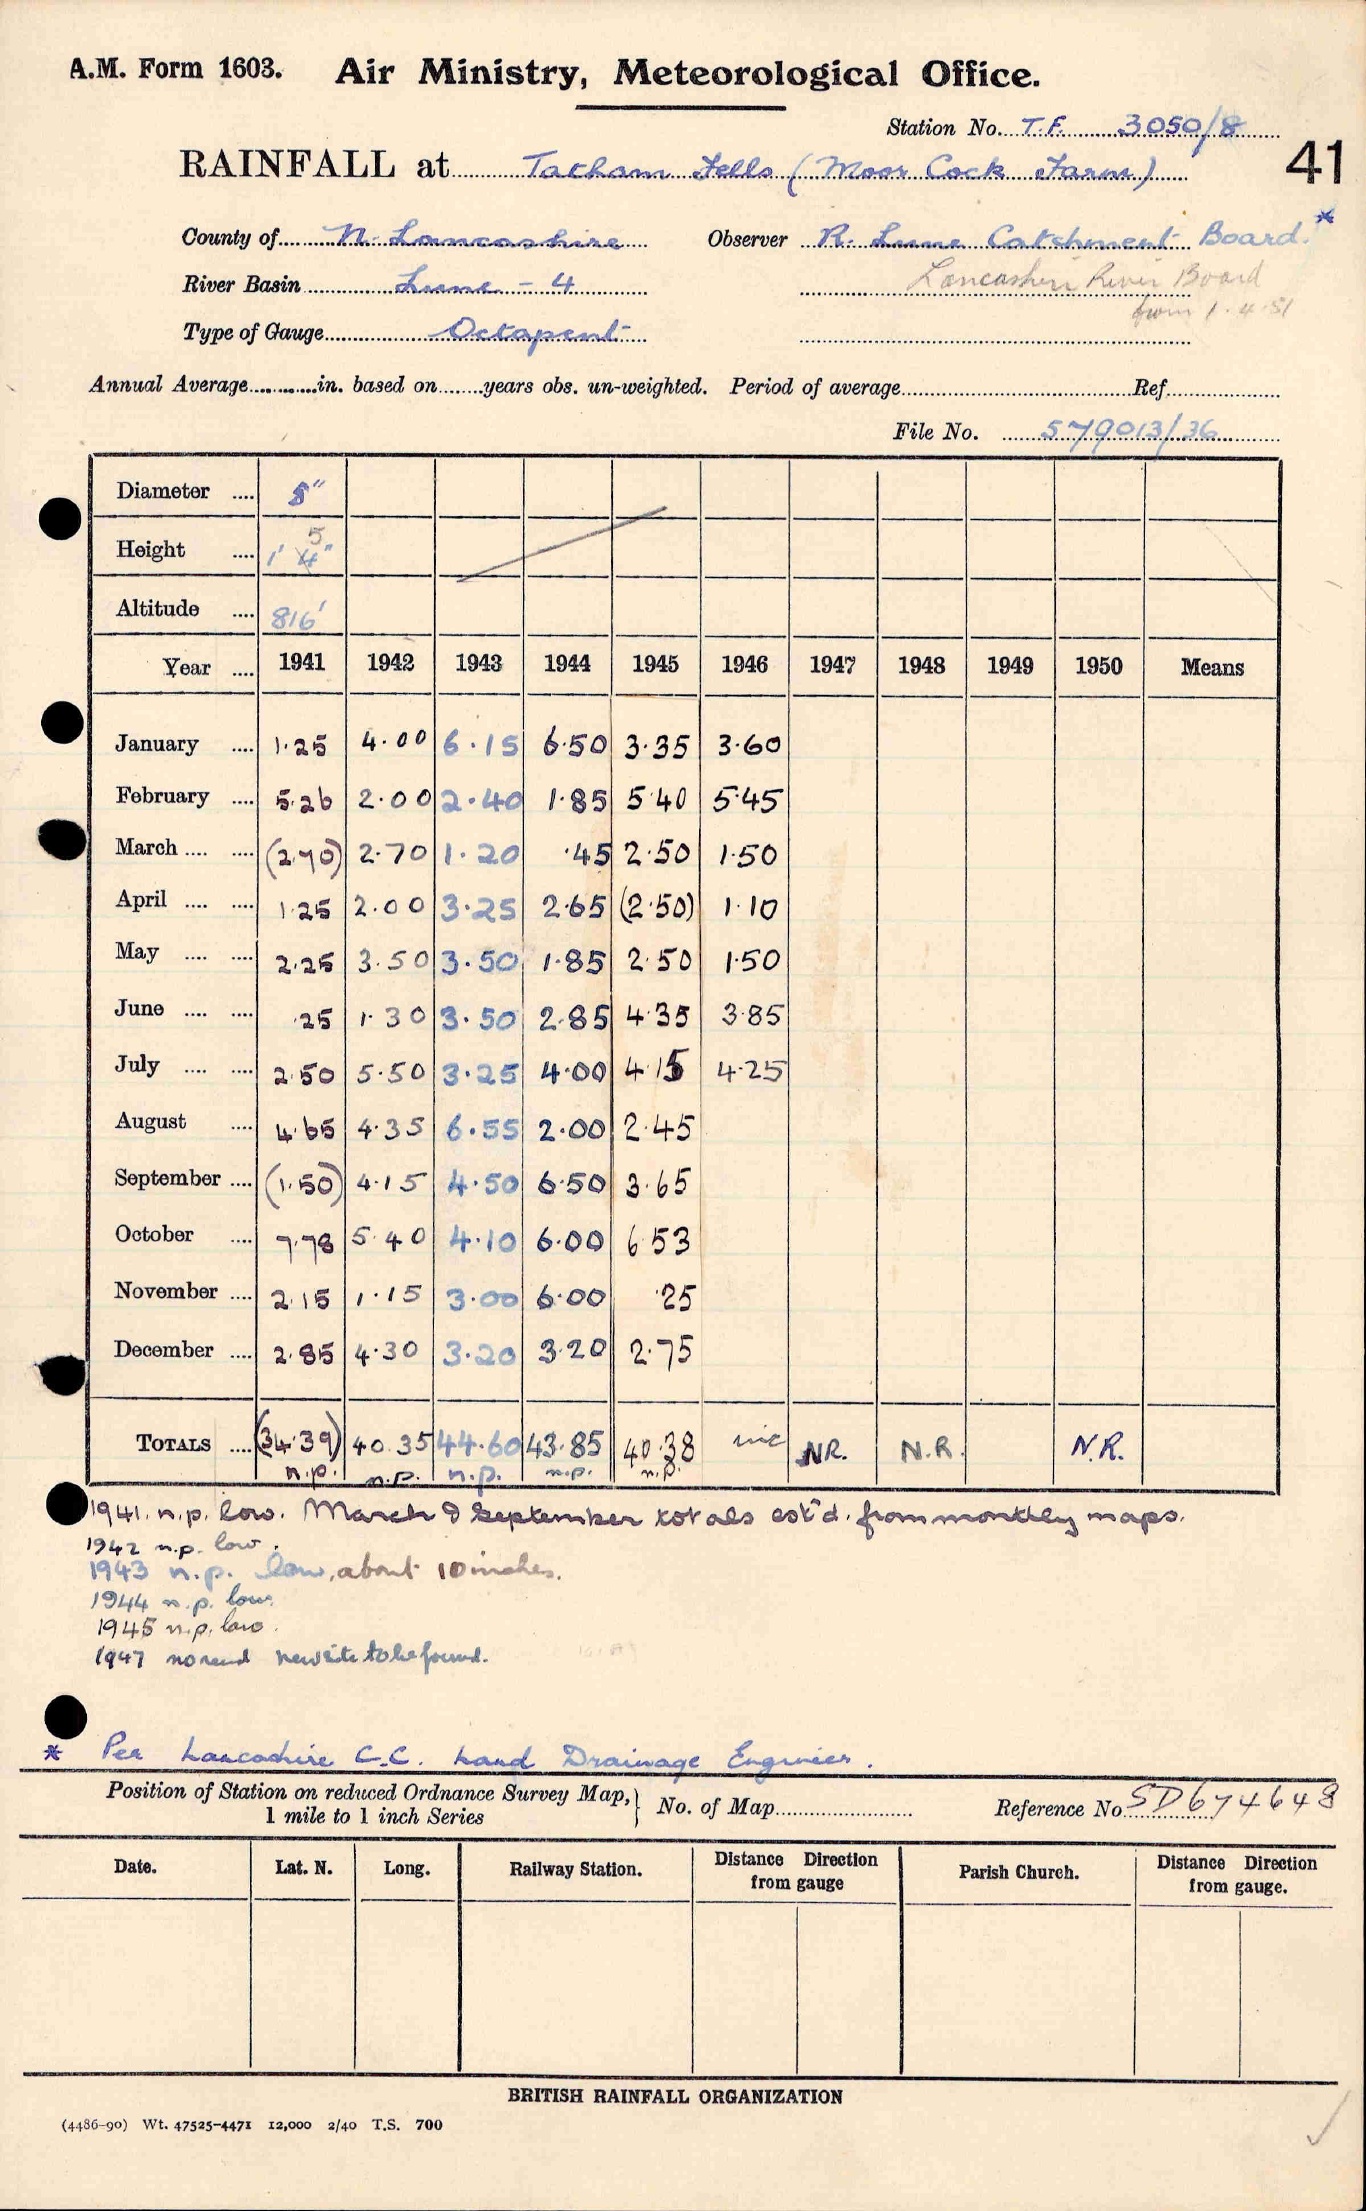 A.M. Form 1603. Air Ministry, Meteorological Office.
Station No. T.F. 3050/8
RAINFALL at Tatham Fells (Moor Cock Farm)
41
County of N. Lancashire Observer R. Lune Catchment Board.*
River Basin Lune - 4 Lancashire River Board
from 1.4.51
Type of Gauge Octapent
Annual Average in. based on years obs. un-weighted. Period of average Ref.
File No. 579013/36
Diameter 8"
5
Height 1' 4"
Altitude 816'
Year 1941 1942 1943 1944 1945 1946 1947 1948 1949 1950 Means
January 1.25 4.00 6.15 6.50 3.35 3.60
February 5.26 2.00 2.40 1.85 5.40 5.45
March (2.70) 2.70 1.20 .45 2.50 1.50
April 1.25 2.00 3.25 2.65 (2.50) 1.10
May 2.25 3.50 3.50 1.85 2.50 1.50
June .25 1.30 3.50 2.85 4.35 3.85
July 2.50 5.50 3.25 4.00 4.15 4.25
August 4.65 4.35 6.55 2.00 2.45
September (1.50) 4.15 4.50 6.50 3.65
October 7.78 5.40 4.10 6.00 6.53
November 2.15 1.15 3.00 6.00 .25
December 2.85 4.30 3.20 3.20 2.75
TOTALS (34.39) 40.35 44.60 43.85 40.38 inc NR. N.R. N.R.
n.p. n.p. n.p. n.p. n.p.
1941. n.p. low. March & September totals est'd. from monthly maps.
1942 n.p. low.
1943 n.p. low, about 10 inches.
1944 n.p. low.
1945 n.p. low.
1947 no read new site to be found.
* Per Lancashire C.C. Land Drainage Engineer.
Position of Station on reduced Ordnance Survey Map, 1 mile to 1 inch Series } No. of Map Reference No. SD674648
Date. Lat. N. Long. Railway Station. Distance Direction from gauge Parish Church. Distance Direction from gauge.
BRITISH RAINFALL ORGANIZATION
(4486-90) Wt. 47525-4471 12,000 2/40 T.S. 700